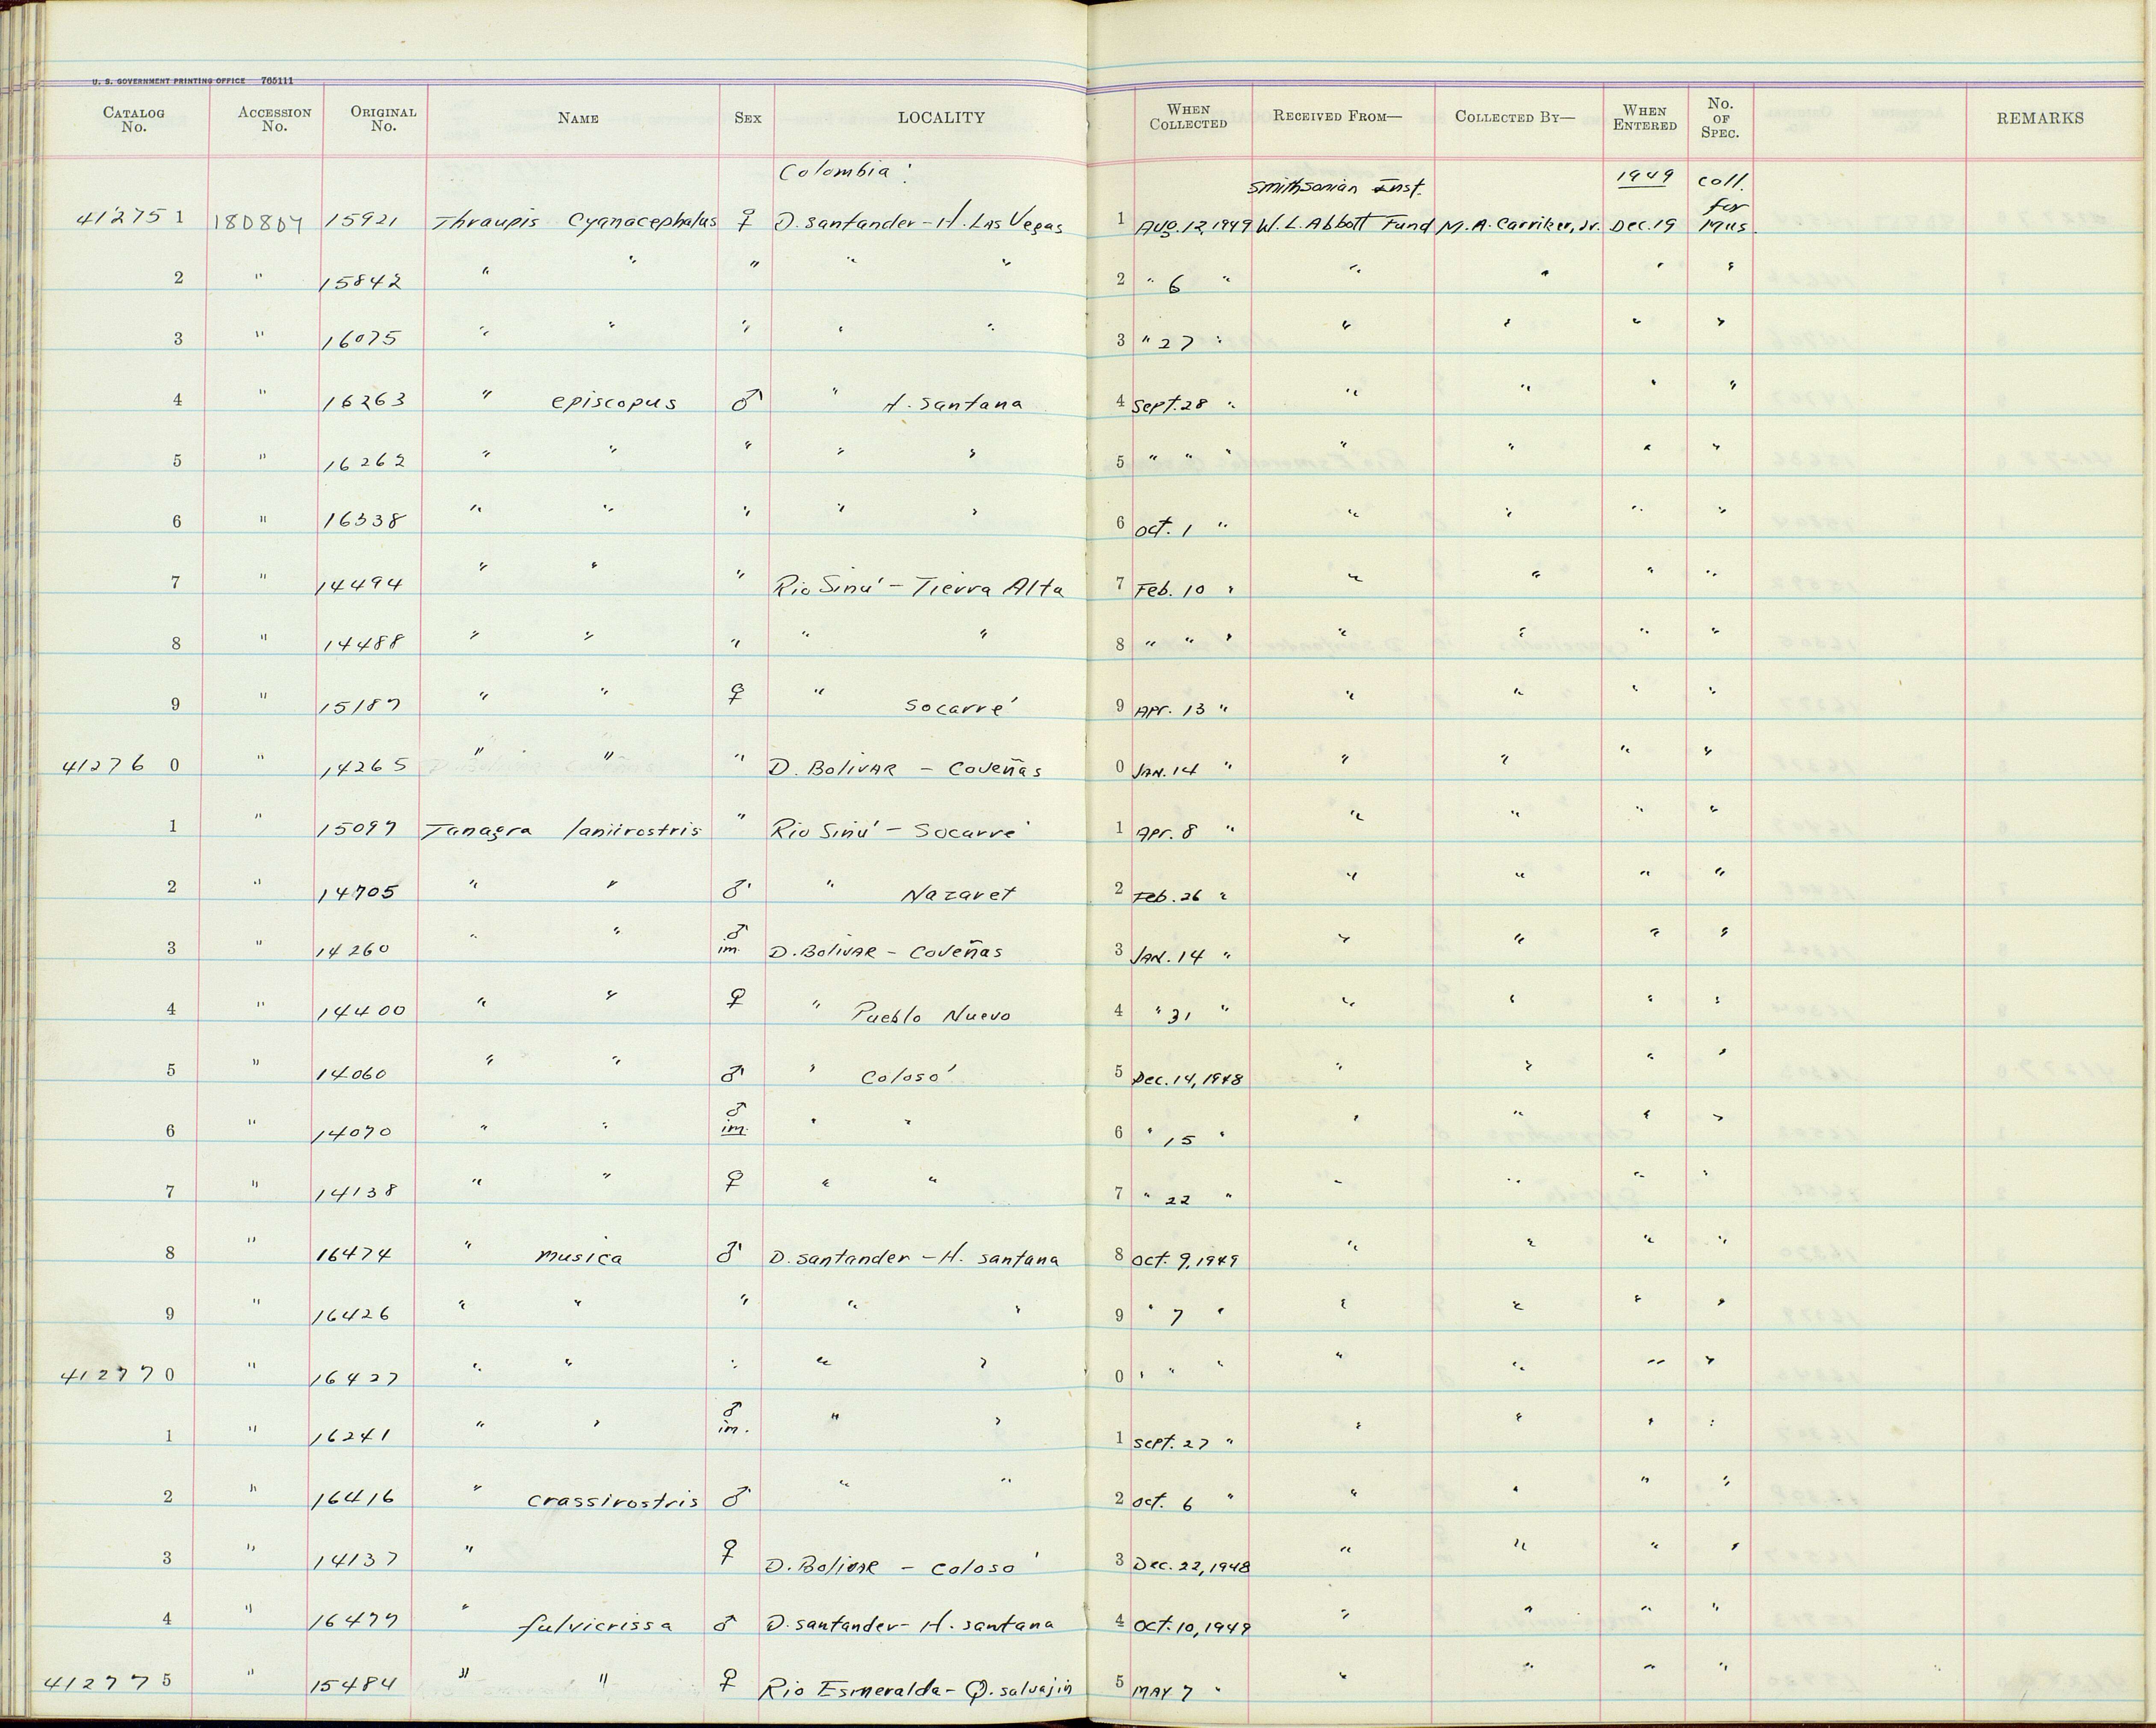 U. S. GOVERNMENT PRINTING OFFICE 765111
CATALOG No. ACCESSION No. ORIGINAL No. NAME SEX LOCALITY WHEN COLLECTED RECEIVED FROM— COLLECTED BY— WHEN ENTERED No. OF SPEC. REMARKS
Colombia: Smithsonian Inst. 1949 coll. for
412751 180807 15921 Thraupis Cyanocephalus ♀ D. Santander - H. Las Vegas 1 Aug. 12, 1949 W. L. Abbott Fund M. A. Carriker, Jr. Dec. 19 Mus.
2 " 15842 " " " " " 2 " 6 " " " " "
3 " 16075 " " " " " 3 " 27 " " " " "
4 " 16263 " episcopus ♂ " H. Santana 4 Sept. 28 " " " " "
5 " 16262 " " " " " 5 " " " " " " "
6 " 16338 " " " " " 6 Oct. 1 " " " " "
7 " 14494 " " " Rio Sinú - Tierra Alta 7 Feb. 10 " " " " "
8 " 14488 " " " " " 8 " " " " " " "
9 " 15187 " " ♀ " Socarré 9 Apr. 13 " " " " "
412760 " 14265 " " " D. Bolivar - Coveñas 0 Jan. 14 " " " " "
1 " 15097 Tanagra laniirostris " Rio Sinú - Socarré 1 Apr. 8 " " " " "
2 " 14705 " " ♂ " Nazaret 2 Feb. 26 " " " " "
3 " 14260 " " ♂ im. D. Bolivar - Coveñas 3 Jan. 14 " " " " "
4 " 14400 " " ♀ " Pueblo Nuevo 4 " 31 " " " " "
5 " 14060 " " ♂ " Colosó 5 Dec. 14, 1948 " " " "
6 " 14070 " " ♂ im. " " 6 " 15 " " " " "
7 " 14138 " " ♀ " " 7 " 22 " " " " "
8 " 16474 " musica ♂ D. Santander - H. Santana 8 Oct. 9, 1949 " " " "
9 " 16426 " " " " " 9 " 7 " " " " "
412770 " 16427 " " " " " 0 " " " " " " "
1 " 16241 " " ♂ im. " " 1 Sept. 27 " " " " "
2 " 16416 " crassirostris ♂ " " 2 Oct. 6 " " " " "
3 " 14137 " ♀ D. Bolivar - Colosó 3 Dec. 22, 1948 " " " "
4 " 16477 " fulvicrissa ♂ D. Santander - H. Santana 4 Oct. 10, 1949 " " " "
412775 " 15484 " " ♀ Rio Esmeralda - Q. Salvajin 5 May 7 " " " " "